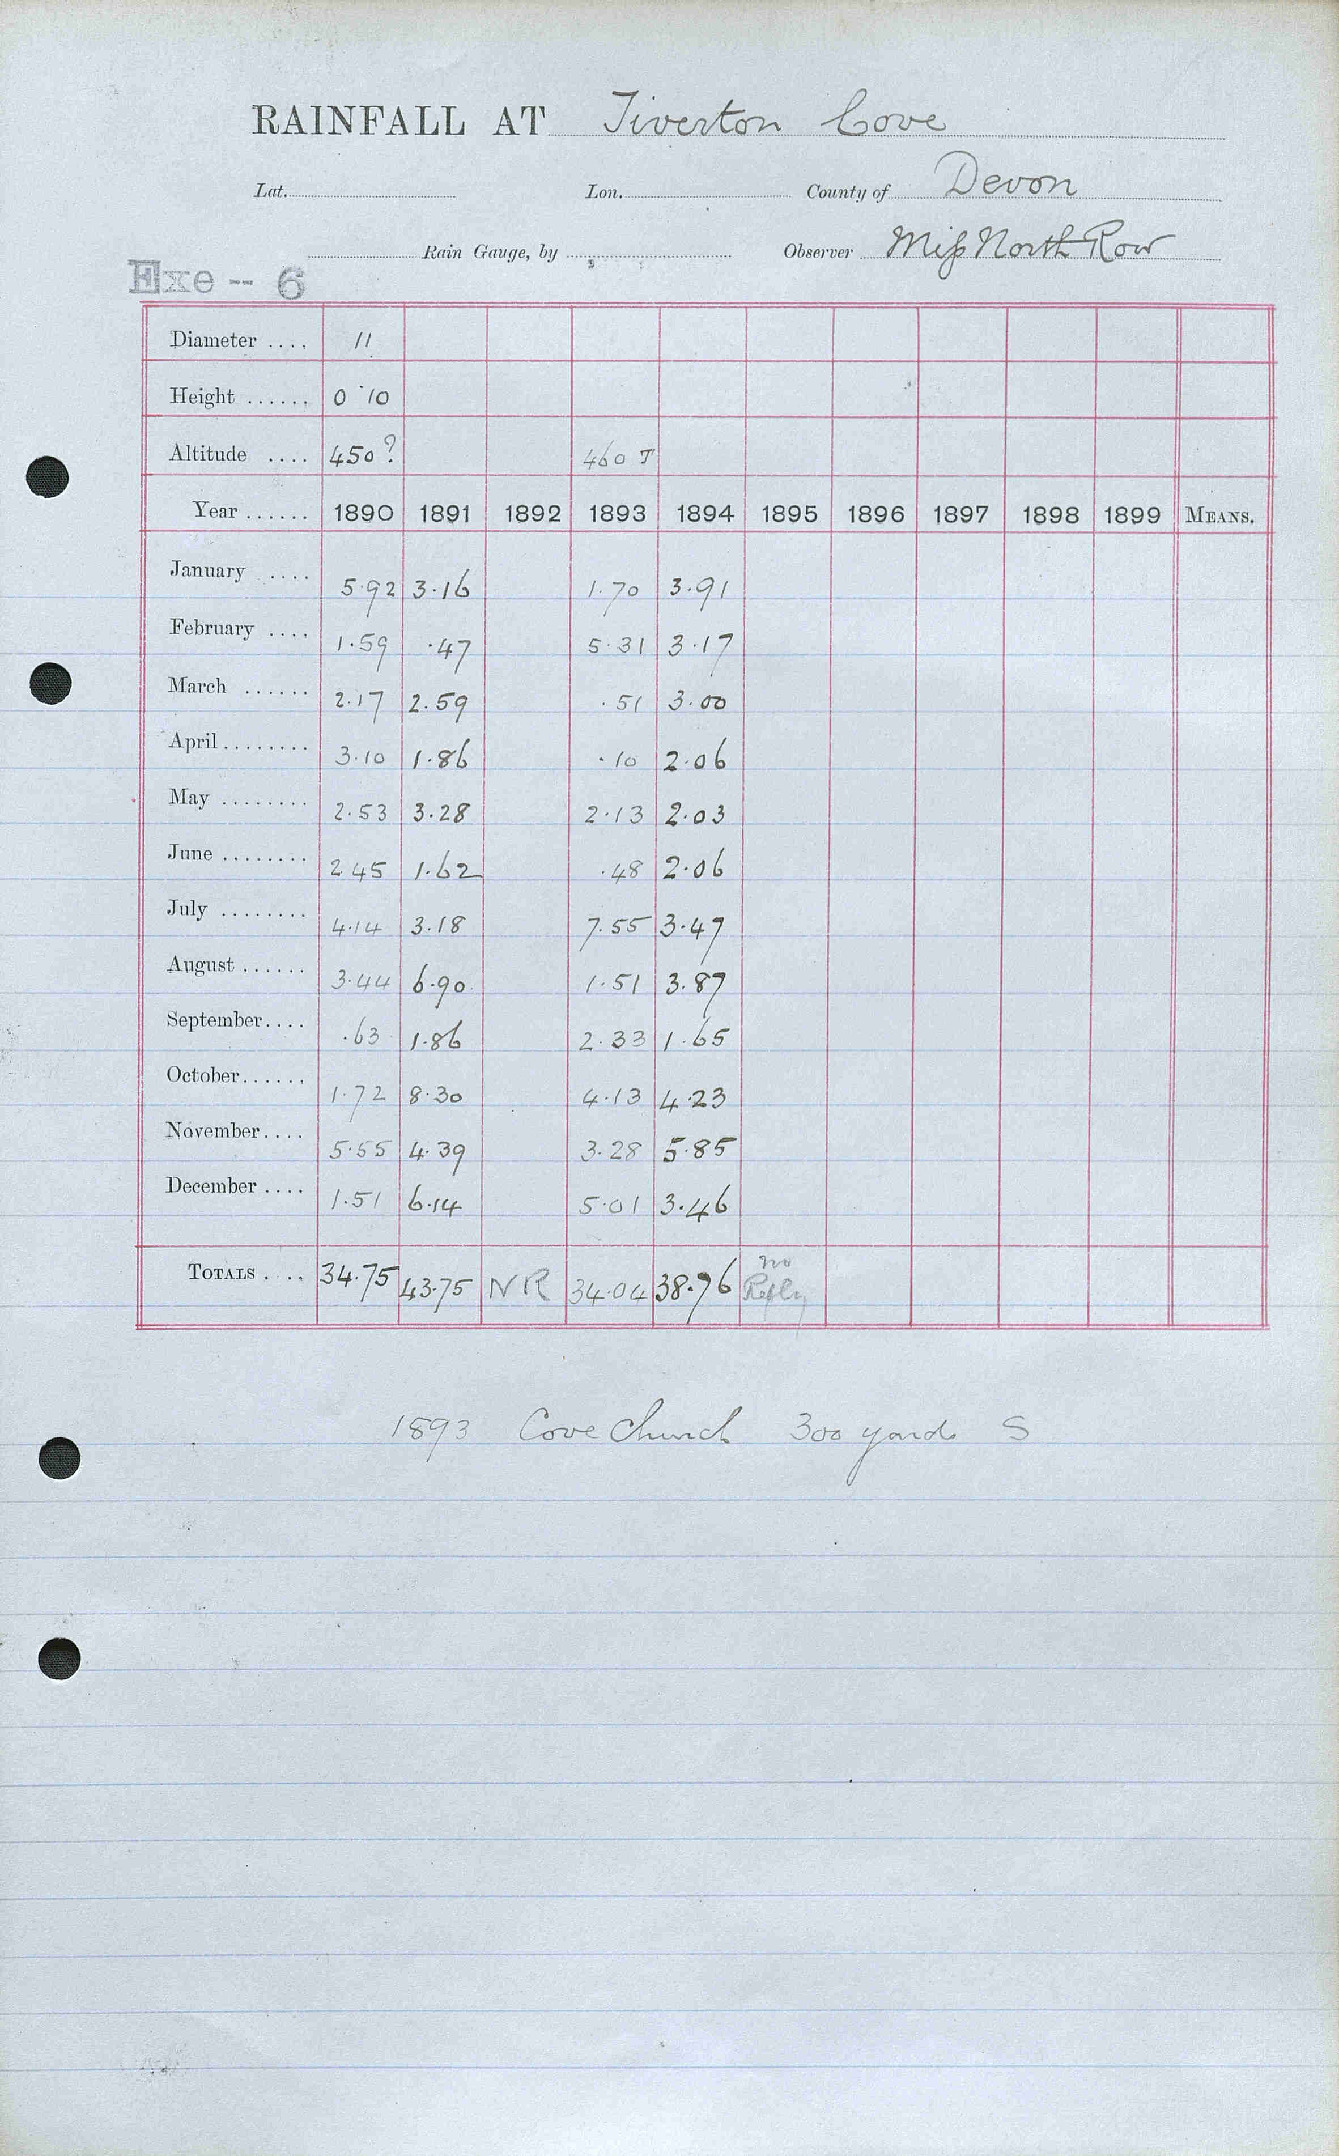 RAINFALL AT Tiverton Cove
Lat. Lon. County of Devon
Rain Gauge, by Observer Miss North Row
Exe -- 6
Diameter .... 11
Height ...... 0 10
Altitude .... 450? 460 T
Year ...... 1890 1891 1892 1893 1894 1895 1896 1897 1898 1899 MEANS.
January .... 5.92 3.16 1.70 3.91
February .... 1.59 .47 5.31 3.17
March ...... 2.17 2.59 .51 3.00
April ........ 3.10 1.86 .10 2.06
May ........ 2.53 3.28 2.13 2.03
June ........ 2.45 1.62 .48 2.06
July ........ 4.14 3.18 7.55 3.47
August ...... 3.44 6.90 1.51 3.87
September.... .63 1.86 2.33 1.65
October...... 1.72 8.30 4.13 4.23
November.... 5.55 4.39 3.28 5.85
December .... 1.51 6.14 5.01 3.46
TOTALS .... 34.75 43.75 NR 34.04 38.76 no Reply
1893 Cove Church 300 yards S